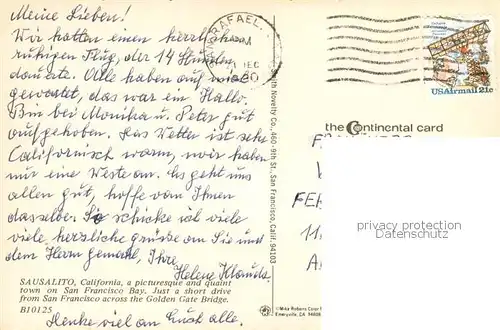 Meine Lieben!
Wir hatten einen herrlichen
ruhigen Flug, der 14 Stunden
dauerte. Alle haben auf mich
gewartet, das war ein Hallo.
Bin bei Monika u. Peter gut
aufgehoben. Das Wetter ist sehr
Californisch warm, wir haben
nur eine Weste an. Es geht uns
allen gut, hoffe von Ihnen
dasselbe. So schicke ich viele
viele herzliche Grüsse an Sie und
dem Herrn Gemahl, Ihre
Helene
SAUSALITO, California, a picturesque and quaint
town on San Francisco Bay. Just a short drive
from San Francisco across the Golden Gate Bridge.
B10125
Denke viel an Euch alle.
RAFAEL,
DEC
80
Novelty Co., 460-9th St., San Francisco, Calif. 94103
©Mike Roberts Color
Emeryville, CA 94608
USAirmail 21c
the Continental card
privacy protection